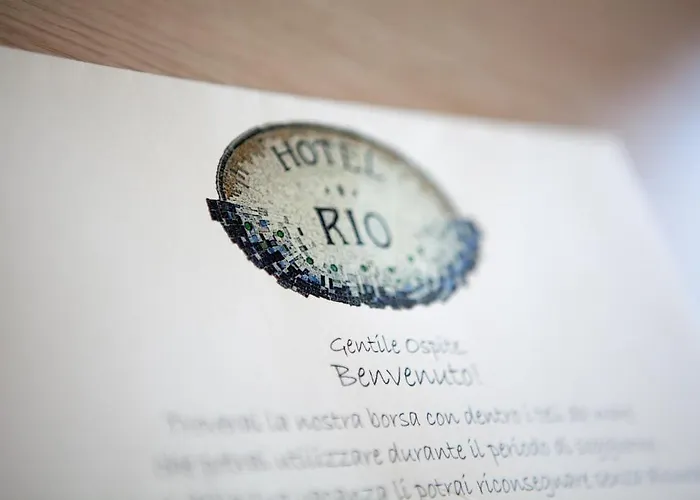 HOTEL
RIO
Gentile Ospite
Benvenuto!
Troverai la nostra borsa con dentro i teli da mare
che potrai utilizzare durante il periodo di soggiorno
vacanza li potrai riconsegnare senza